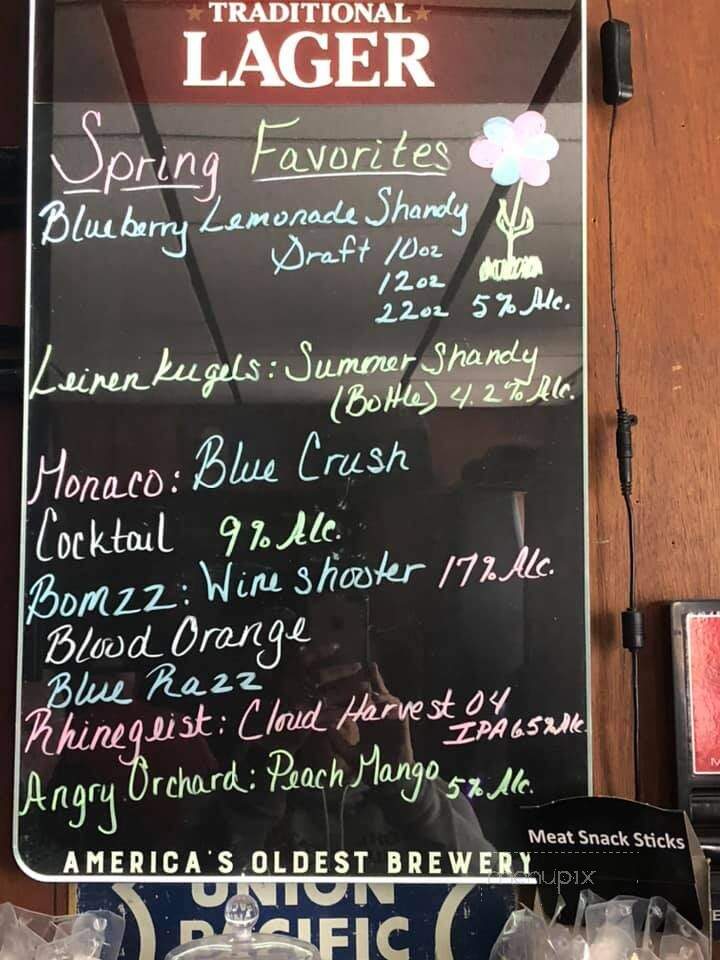 TRADITIONAL
LAGER
Spring Favorites
Blueberry Lemonade Shandy
Draft 10oz
12oz
22oz 5% Alc.
Leinenkugels: Summer Shandy
(Bottle) 4.2% Alc.
Monaco: Blue Crush
Cocktail 9% Alc.
Bomzz: Wine shooter 17% Alc.
Blood Orange
Blue Razz
Rhinegeist: Cloud Harvest 04
IPA 6.5% Alc
Angry Orchard: Peach Mango 5% Alc.
AMERICA'S OLDEST BREWERY
Meat Snack Sticks
menupix
UNION
PACIFIC